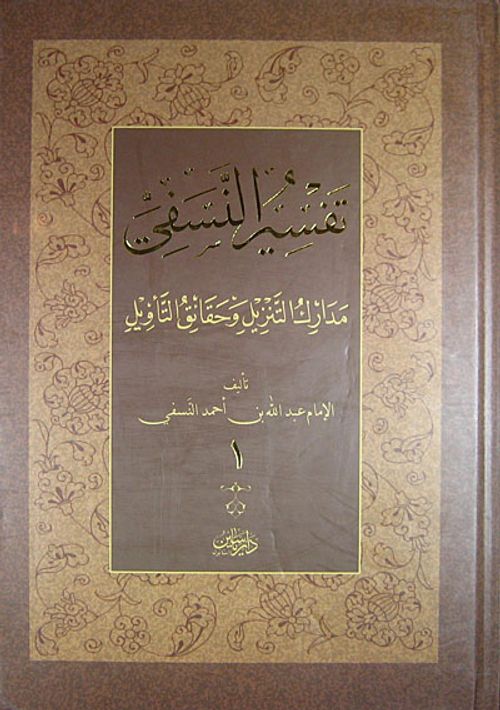 تَفْسِيْرُ النَّسَفِيِّ
مَدَارِكُ التَّنْزِيْلِ وَحَقَائِقُ التَّأوِيْلِ
تأليف
الإمام عبد الله بن أحمد النَّسفي
١